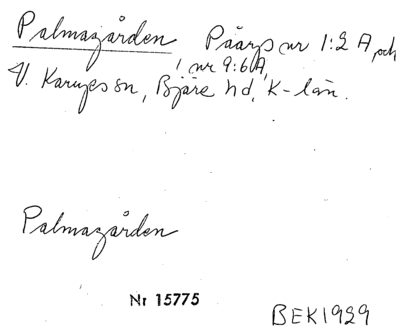 Palmagården Påarp nr 1:2 A, och
nr 9:6A,
V. Karups sn, Bjäre hd, K-län.
Palmagården
Nr 15775
BEK1929